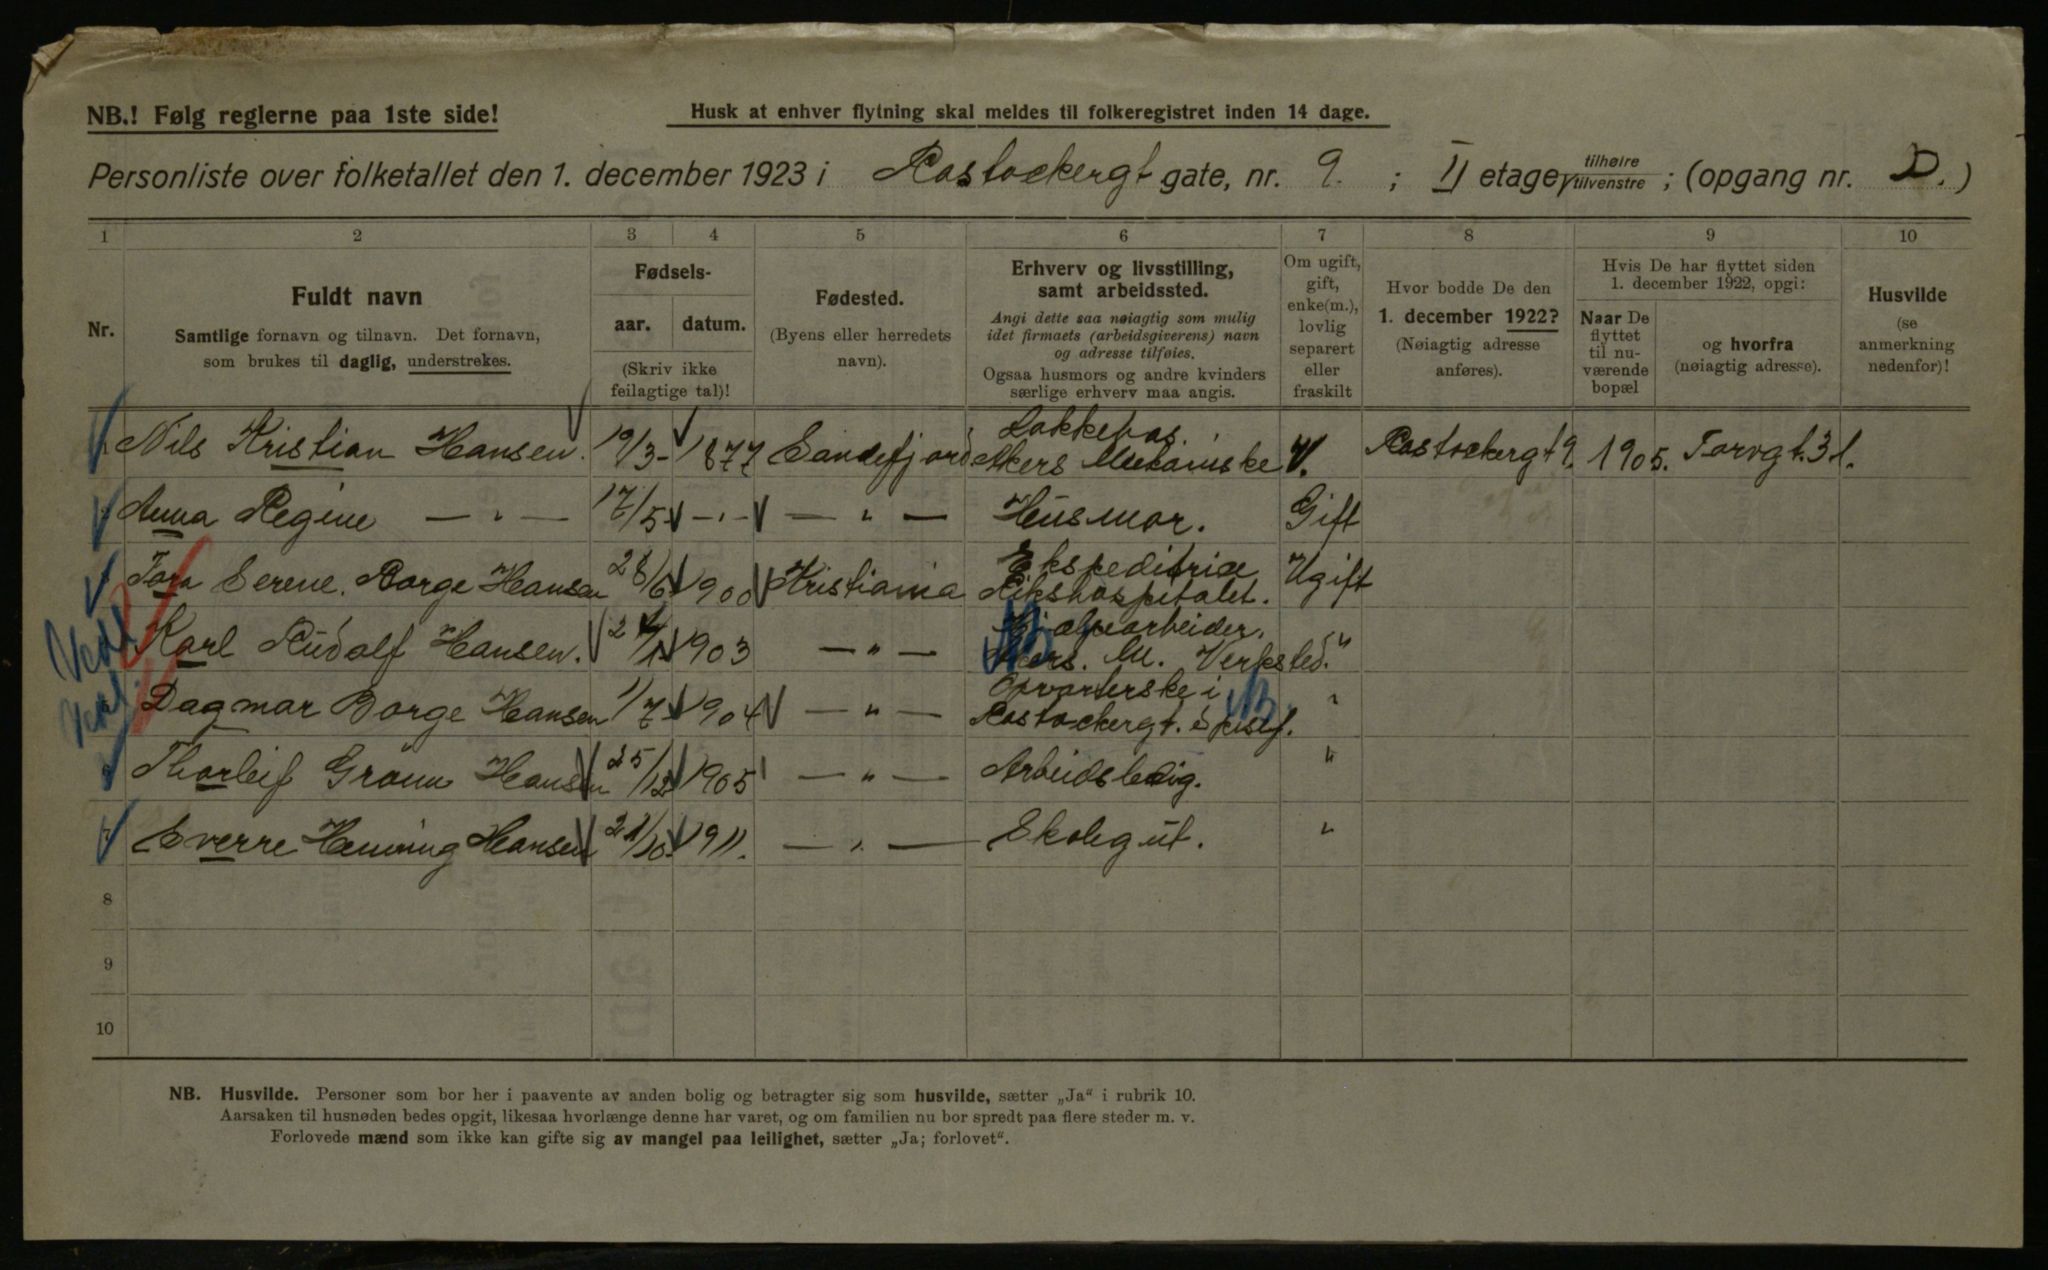 NB.! Følg reglerne paa 1ste side!
Husk at enhver flytning skal meldes til folkeregistret inden 14 dage.
Personliste over folketallet den 1. december 1923 i Rastockergt gate, nr. 9. ; II etage, tilhøire tilvenstre ; (opgang nr. D.)
1 2 3 4 5 6 7 8 9 10
Nr.
Fuldt navn
Samtlige fornavn og tilnavn. Det fornavn,
som brukes til daglig, understrekes.
Fødsels-
aar. datum.
(Skriv ikke
feilagtige tal)!
Fødested.
(Byens eller herredets
navn).
Erhverv og livsstilling,
samt arbeidssted.
Angi dette saa nøiagtig som mulig
idet firmaets (arbeidsgiverens) navn
og adresse tilføies.
Ogsaa husmors og andre kvinders
særlige erhverv maa angis.
Om ugift,
gift,
enke(m.),
lovlig
separert
eller
fraskilt
Hvor bodde De den
1. december 1922?
(Nøiagtig adresse
anføres).
Hvis De har flyttet siden
1. december 1922, opgi:
Naar De
flyttet
til nu-
værende
bopæl
og hvorfra
(nøiagtig adresse).
Husvilde
(se
anmerkning
nedenfor)!
Nils Kristian Hansen. 19/3- 1877 Sandefjord Akers Mekaniske Rastockergt 9. 1905. Torvgt. 31.
Anna Regine — " — 17/5 - " - — " — Husmor. Gift
Tora Serene. Borge Hansen 28/6 1900 Kristiania Ekspeditrice Rikshospitalet. Ugift
Karl Rudolf Hansen. 1903 — " — Hjælpearbeider. Akers. M. Verksted. "
Dagmar Borge Hansen 1/7 1904 — " — Opvarterske i Rastockergt. "
6 Thorleif Hansen 25/12 1905 — " — Arbeidsledig. "
7 Sverre Henning Hansen 21/10 1911. — " — Skolegut. "
8
9
10
NB. Husvilde. Personer som bor her i paavente av anden bolig og betragter sig som husvilde, sætter „Ja“ i rubrik 10.
Aarsaken til husnøden bedes opgit, likesaa hvorlænge denne har varet, og om familien nu bor spredt paa flere steder m. v.
Forlovede mænd som ikke kan gifte sig av mangel paa leilighet, sætter „Ja; forlovet“.